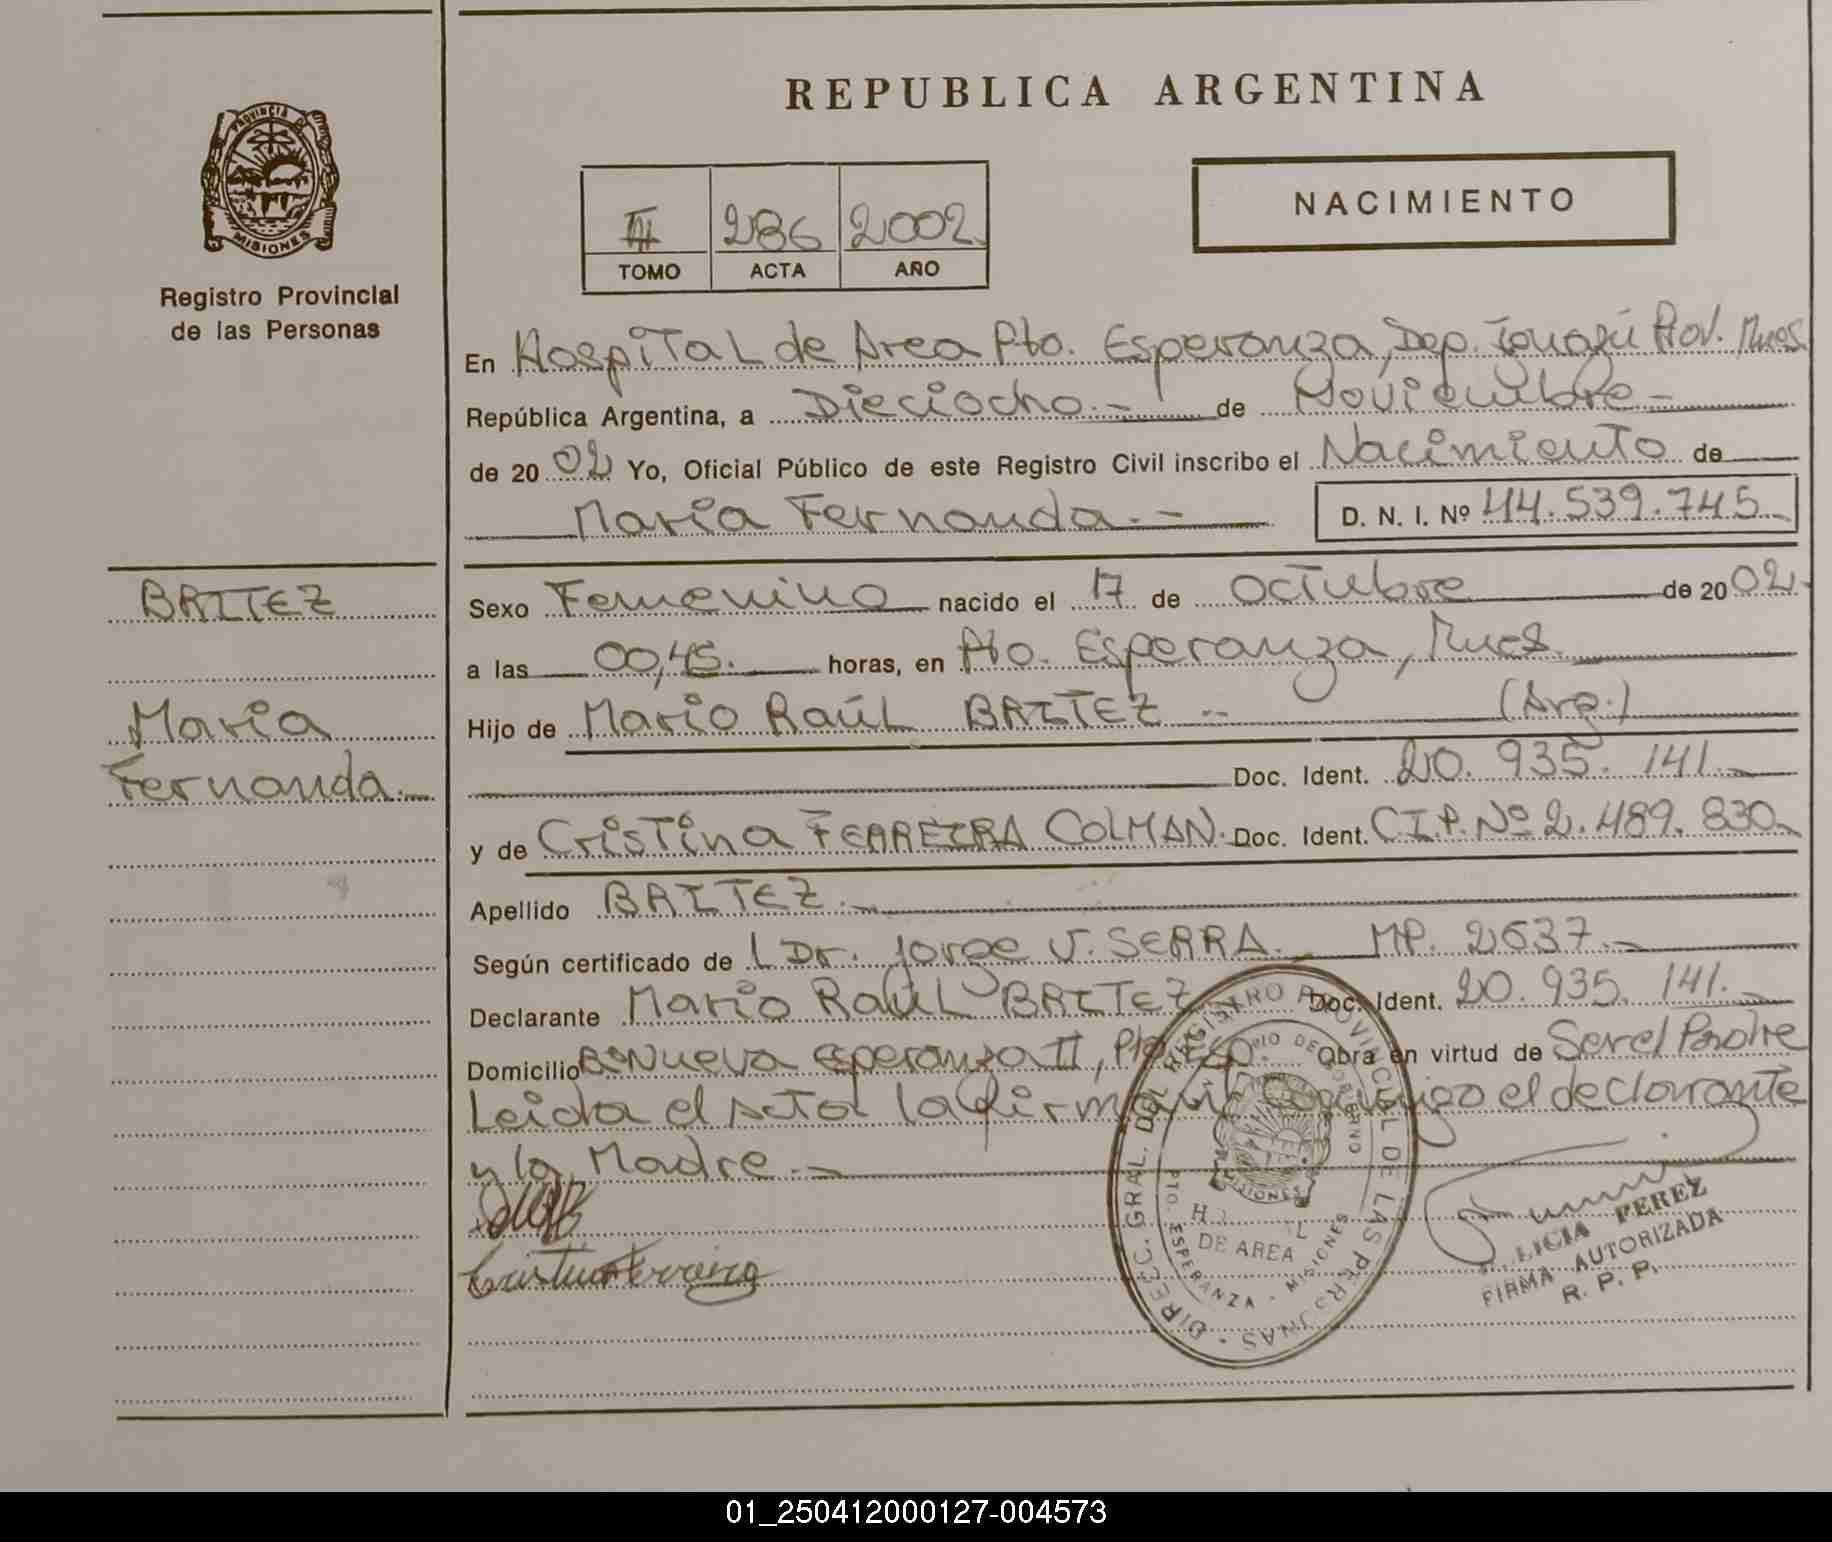 REPUBLICA ARGENTINA
PROVINCIA DE
MISIONES
Registro Provincial
de las Personas
NACIMIENTO
286 2002
TOMO ACTA AÑO
En Hospital de Area Pto. Esperanza, Dep. Iguazú Prov. Mnes.
República Argentina, a Dieciocho.- de Noviembre-
de 2002 Yo, Oficial Público de este Registro Civil inscribo el Nacimiento de
Maria Fernanda.- D. N. I. Nº 44.539.745
BRITEZ
Maria
Fernanda.
Sexo Femenino nacido el 17 de Octubre de 2002.
a las 00,45. horas, en Pto. Esperanza, Mnes.
Hijo de Mario Raúl BRITEZ - (Arg.)
Doc. Ident. 20. 935. 141.
y de Cristina FERREIRA COLMAN. Doc. Ident. C.I.P. Nº 2. 489. 830
Apellido BRITEZ.
Según certificado de Dr. Jorge V. SERRA. MP. 2637.
Declarante Mario Raúl BRITEZ Doc. Ident. 20. 935. 141.
Domicilio Bº Nueva Esperanza II, Pto. Obra en virtud de Ser el Padre
Leida el acta la firman conmigo el declarante
y la Madre.-
Cristina Ferreira
DIRECC. GRAL. DEL REGISTRO PROVINCIAL DE LAS PERSONAS
DE GOBIERNO
MISIONES
DE AREA
PTO. ESPERANZA - MISIONES
LICIA PEREZ
FIRMA AUTORIZADA
R. P. P.
01_250412000127-004573